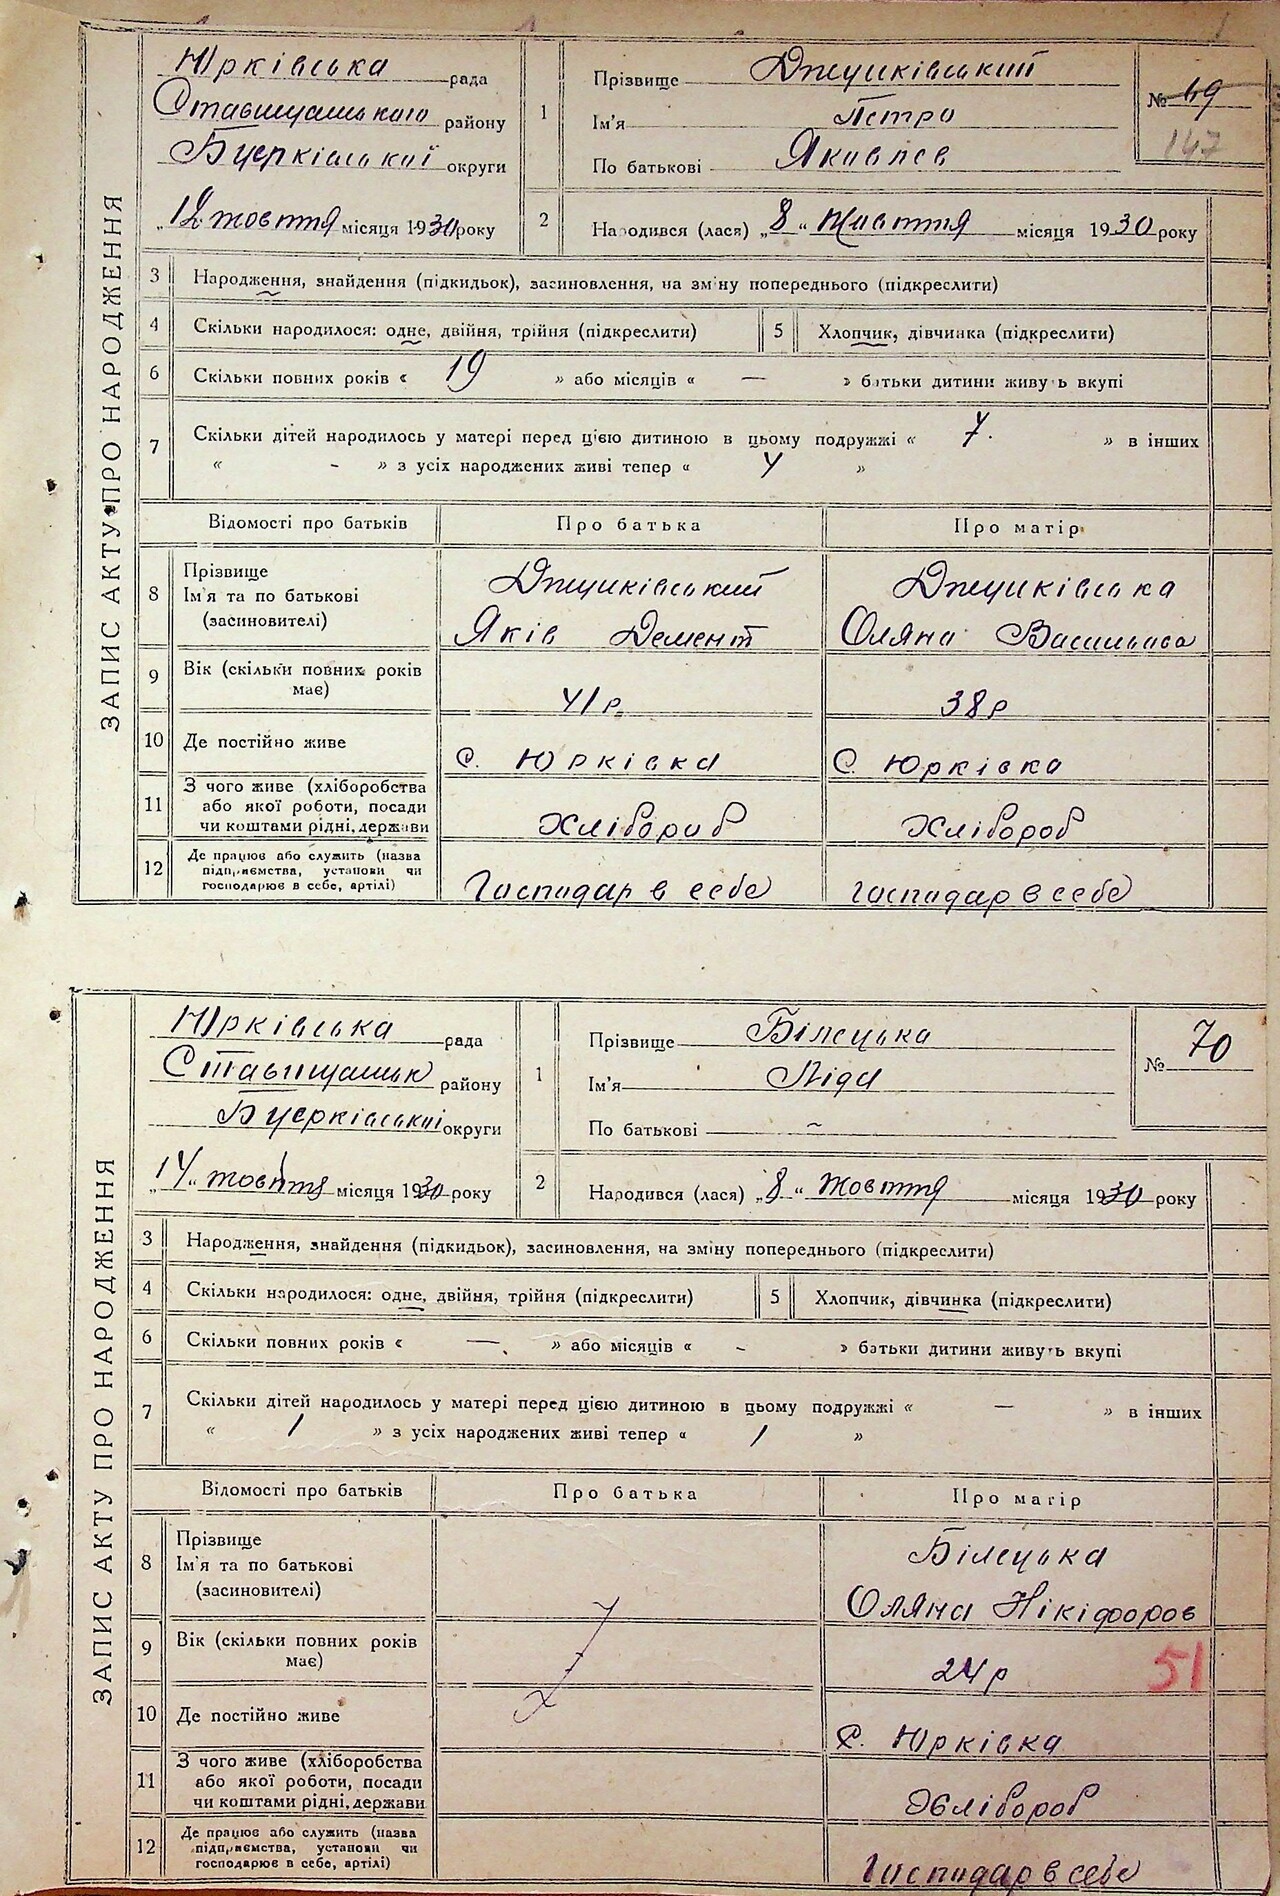 ЗАПИС АКТУ ПРО НАРОДЖЕННЯ
Юрківська рада
Ставищанського району
Б церківської округи
„12 жовтня місяця 1930 року
1 Прізвище Джуківський
Ім'я Петро
По батькові Яковлев
№ 69
147
2 Народився (лася) „8“ Жовтня місяця 1930 року
3 Народження, знайдення (підкидьок), засиновлення, на зміну попереднього (підкреслити)
4 Скільки народилося: одне, двійня, трійня (підкреслити) 5 Хлопчик, дівчинка (підкреслити)
6 Скільки повних років « 19 » або місяців « — » батьки дитини живуть вкупі
7 Скільки дітей народилось у матері перед цією дитиною в цьому подружжі « 7. » в інших
« - » з усіх народжених живі тепер « 4 »
Відомості про батьків Про батька Про матір
8 Прізвище
Ім'я та по батькові
(засиновителі)
Джуківський
Яків Демент
Джуківська
Оляна Васильова
9 Вік (скільки повних років
має)
41 р. 38 р
10 Де постійно живе с. Юрківка с. Юрківка
11 З чого живе (хліборобства
або якої роботи, посади
чи коштами рідні, держави
Хлібороб Хлібороб
12 Де працює або служить (назва
підприємства, установи чи
господарює в себе, артілі)
Господар в себе господар в себе
ЗАПИС АКТУ ПРО НАРОДЖЕННЯ
Юрківська рада
Ставищанськ району
Б церківської округи
„14“ жовтня місяця 1930 року
1 Прізвище Білецька
Ім'я Ліда
По батькові ~
№ 70
2 Народився (лася) „8“ жовтня місяця 1930 року
3 Народження, знайдення (підкидьок), засиновлення, на зміну попереднього (підкреслити)
4 Скільки народилося: одне, двійня, трійня (підкреслити) 5 Хлопчик, дівчинка (підкреслити)
6 Скільки повних років « — » або місяців « - » батьки дитини живуть вкупі
7 Скільки дітей народилось у матері перед цією дитиною в цьому подружжі « — » в інших
« 1 » з усіх народжених живі тепер « 1 »
Відомості про батьків Про батька Про матір
8 Прізвище
Ім'я та по батькові
(засиновителі)
Білецька
Оляна Нікіфоров
9 Вік (скільки повних років
має)
24 р
51
10 Де постійно живе с. Юрківка
11 З чого живе (хліборобства
або якої роботи, посади
чи коштами рідні, держави
Хлібороб
12 Де працює або служить (назва
підприємства, установи чи
господарює в себе, артілі)
Господар в себе